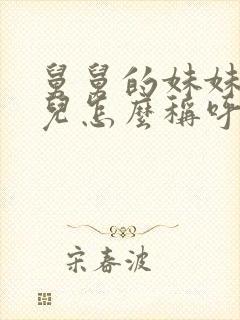 舅舅的妹妹
兒怎麼稱呼
宋春波